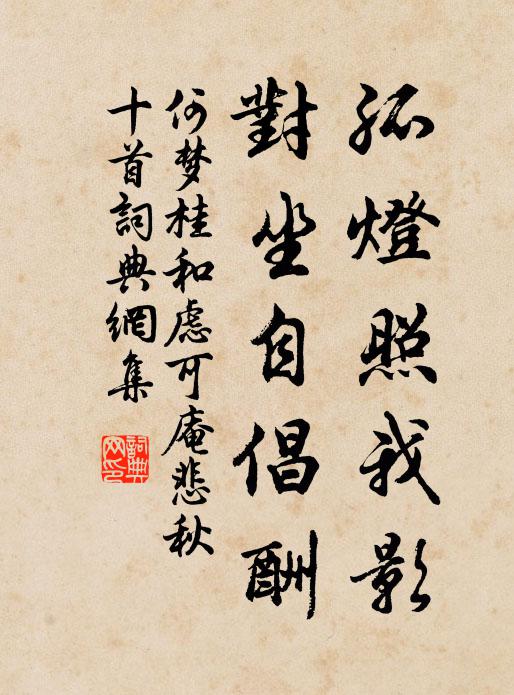 孤燈照我影
對坐自倡酬
何梦桂和慮可庵悲秋
十首詞典網集
詞典网印